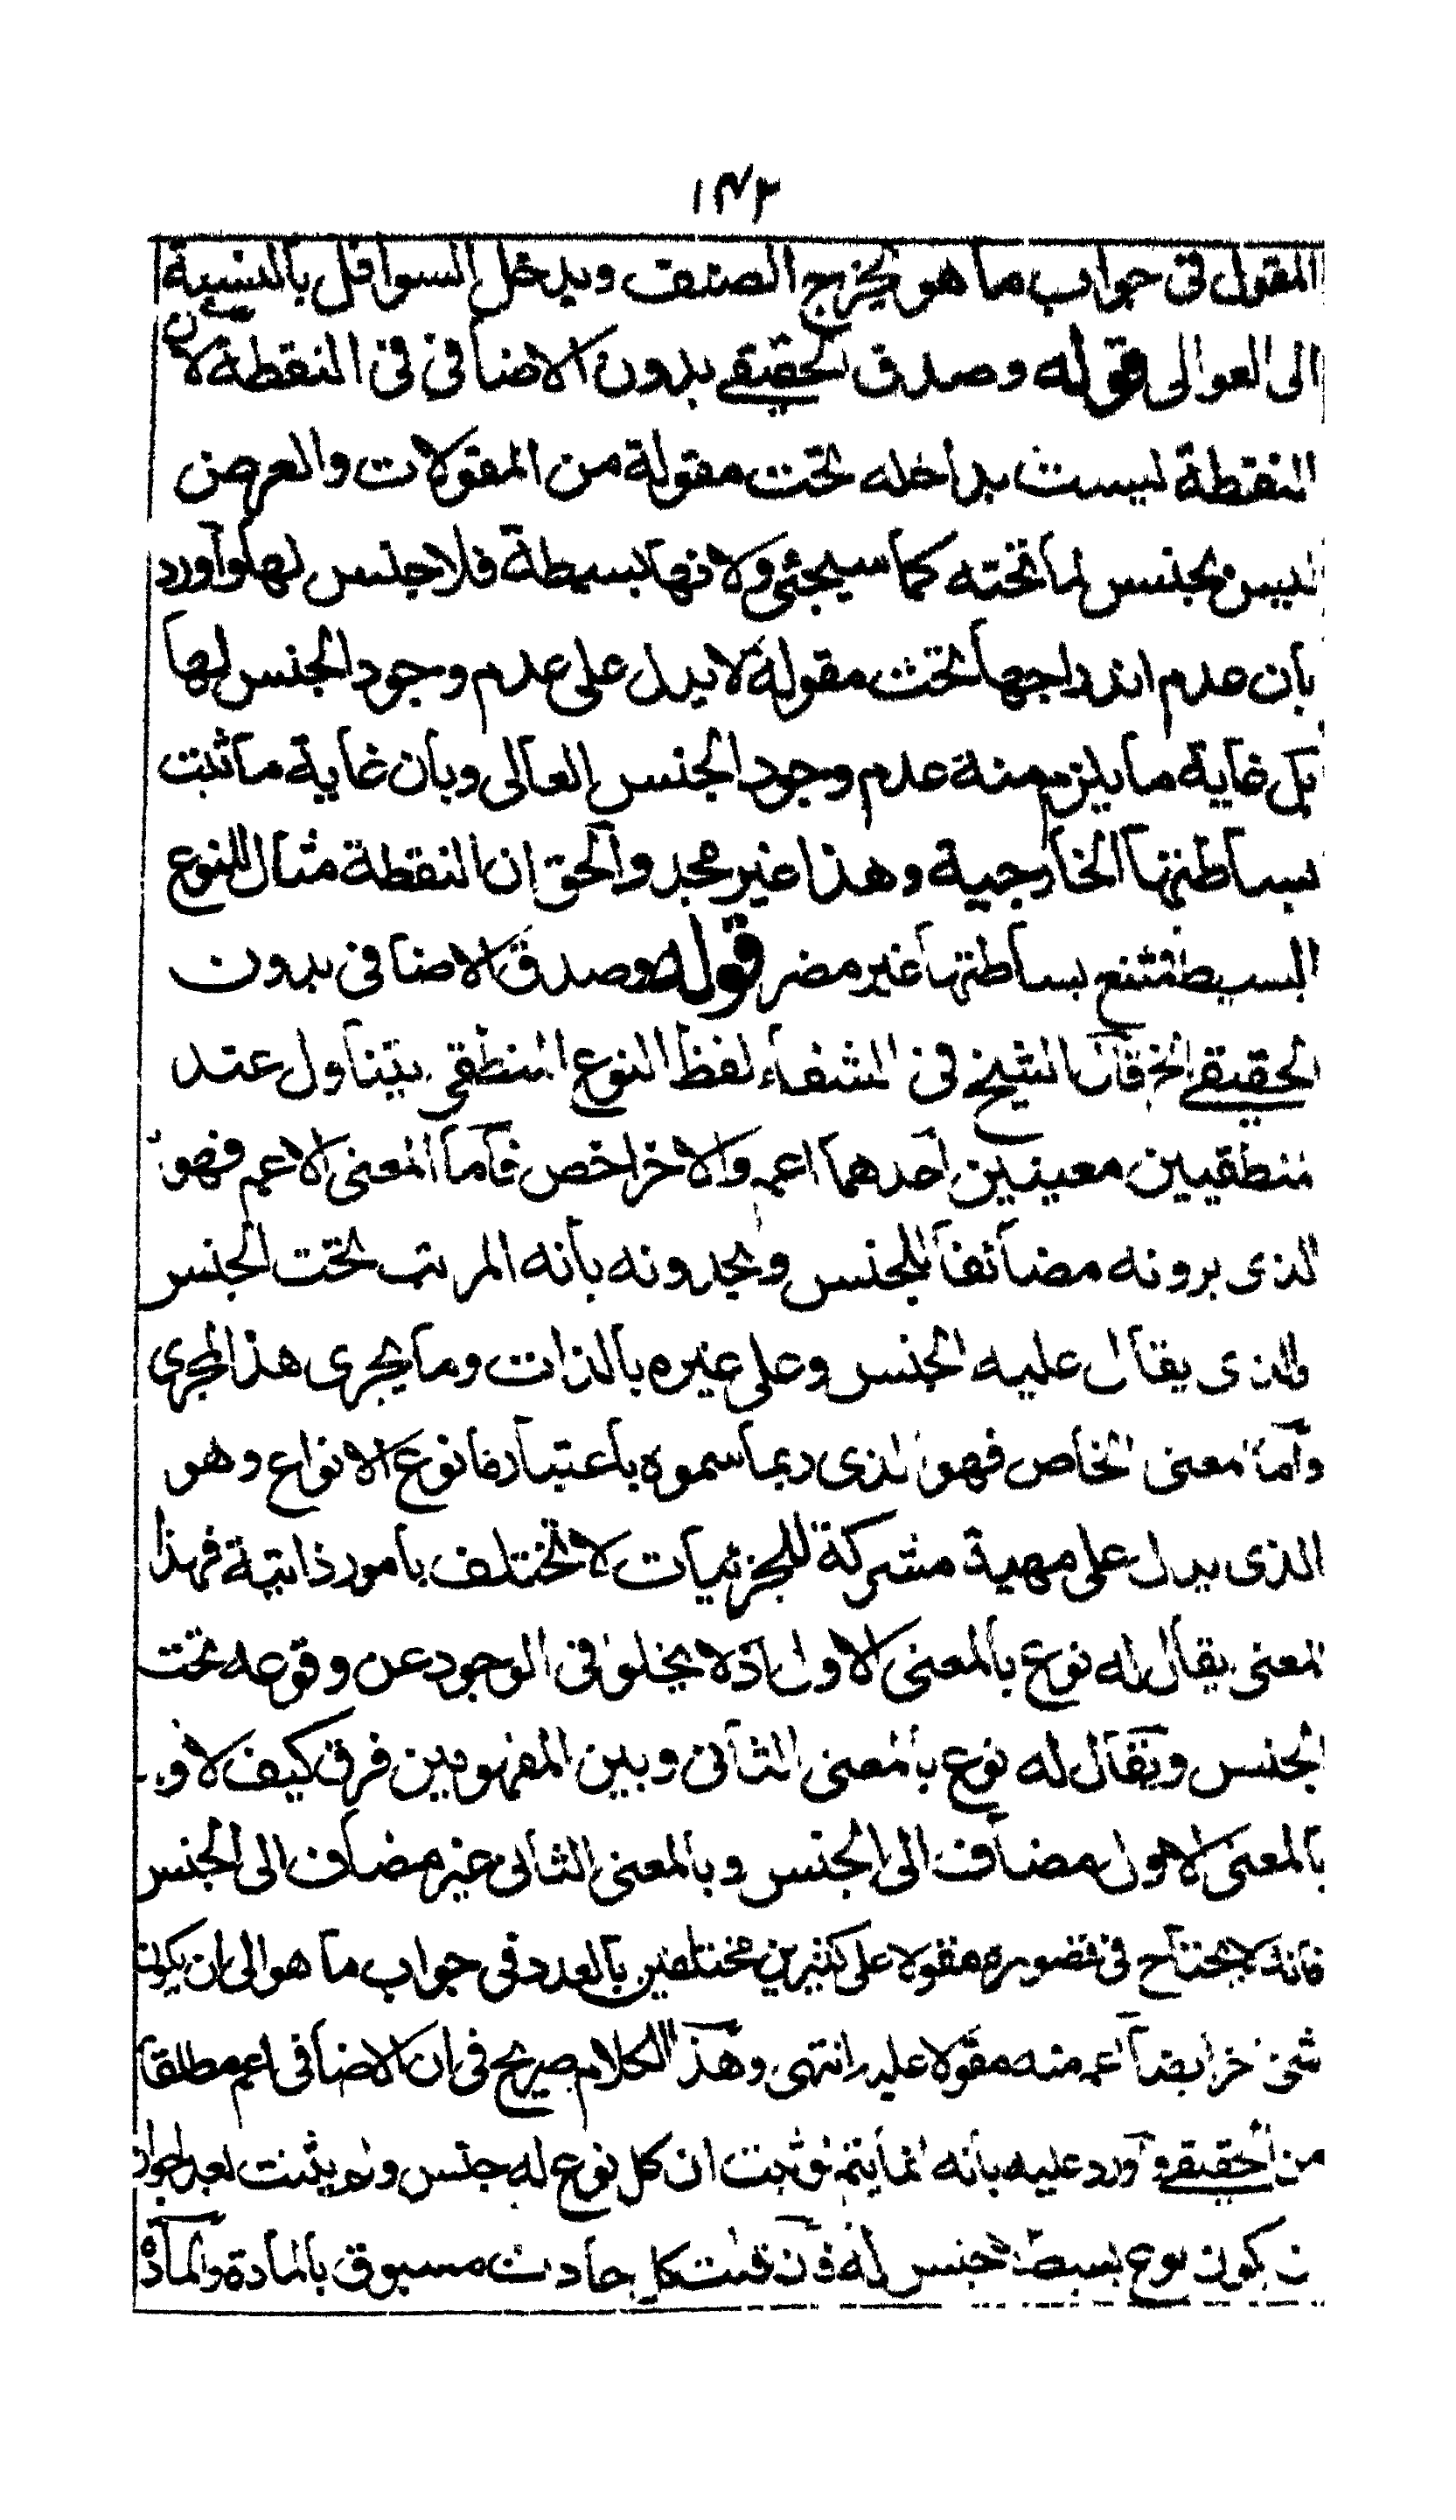 ١٣٢
المقول فى جواب ما هو يخرج الصنف ويدخل السوافل بالنسبة
الى العوالى قوله وصدق الحقيقى بدون الاضافى فى النقطة لان
النقطة ليست بداخله تحت مقولة من المقولات والعرض
ليس بجنس لما تحته كما سيجئ ولانها بسيطة فلا جنس لها واورد
بان عدم اندراجها تحت مقولة لا يدل على عدم وجود الجنس لها
بل غاية ما يلزم منه عدم وجود الجنس العالى وبان غاية ما ثبت
بساطتها الخارجية وهذا غير مجد والحق ان النقطة مثال للنوع
البسيط بساطتها غير مضر قوله وصدق الاضافى بدون
الحقيقى الخ قال الشيخ فى الشفاء لفظ النوع المنطقى يتناول عند
منطقيين معينين احدهما اعم والاخر اخص فاما المعنى الاعم فهو
الذى يرونه مضائفا للجنس ويحدونه بانه المرتب تحت الجنس
والذى يقال عليه الجنس وعلى غيره بالذات وما يجرى هذا المجرى
واما المعنى الخاص فهو الذى ربما سموه باعتبار ما نوع الانواع وهو
الذى يدل على مهية مشتركة للجزئيات لا تختلف بامور ذاتية فهذا
المعنى يقال له نوع بالمعنى الاول اذ لا يخلو فى الوجود عن وقوعه تحت
الجنس ويقال له نوع بالمعنى الثانى وبين المفهومين فرق كيف لا و
بالمعنى الاول مضاف الى الجنس وبالمعنى الثانى غير مضاف الى الجنس
فانه لا يحتاج فى تصوره مقولا على كثيرين مختلفين بالعدد فى جواب ما هو الى ان يكون
شئ اخر ايضا اعم منه مقولا عليه انتهى وهذا الكلام صريح فى ان الاضافى اعم مطلقا
من الحقيقى واورد عليه بانه انما يتم لو ثبت ان كل نوع له جنس ولم يثبت بعد لجواز
ان يكون نوع بسيط لا جنس له فان قلت كل حادث مسبوق بالمادة والمادة